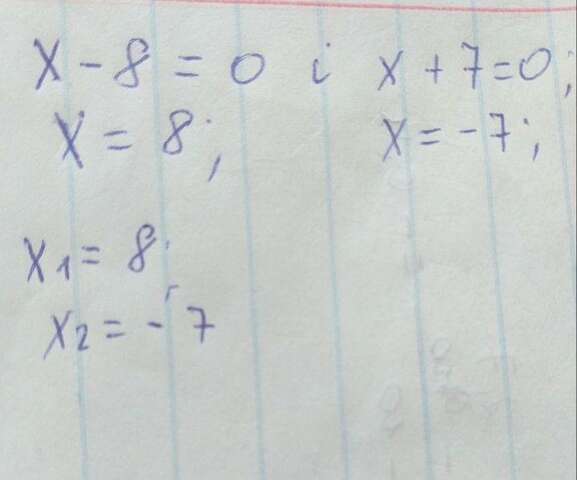 x - 8 = 0 i x + 7 = 0;
x = 8; x = -7;
x₁ = 8
x₂ = -7